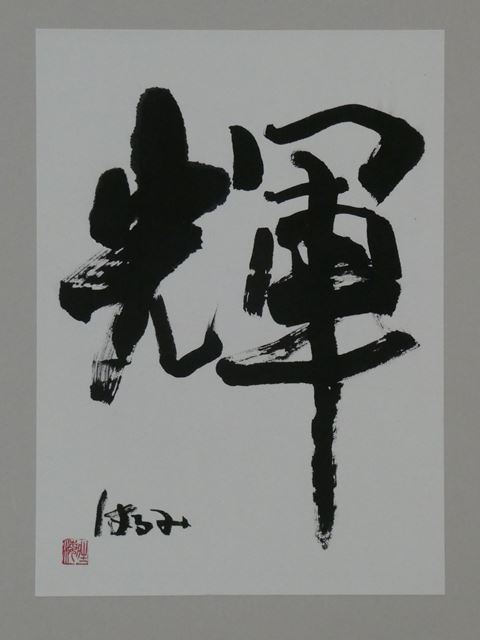 輝
はるみ